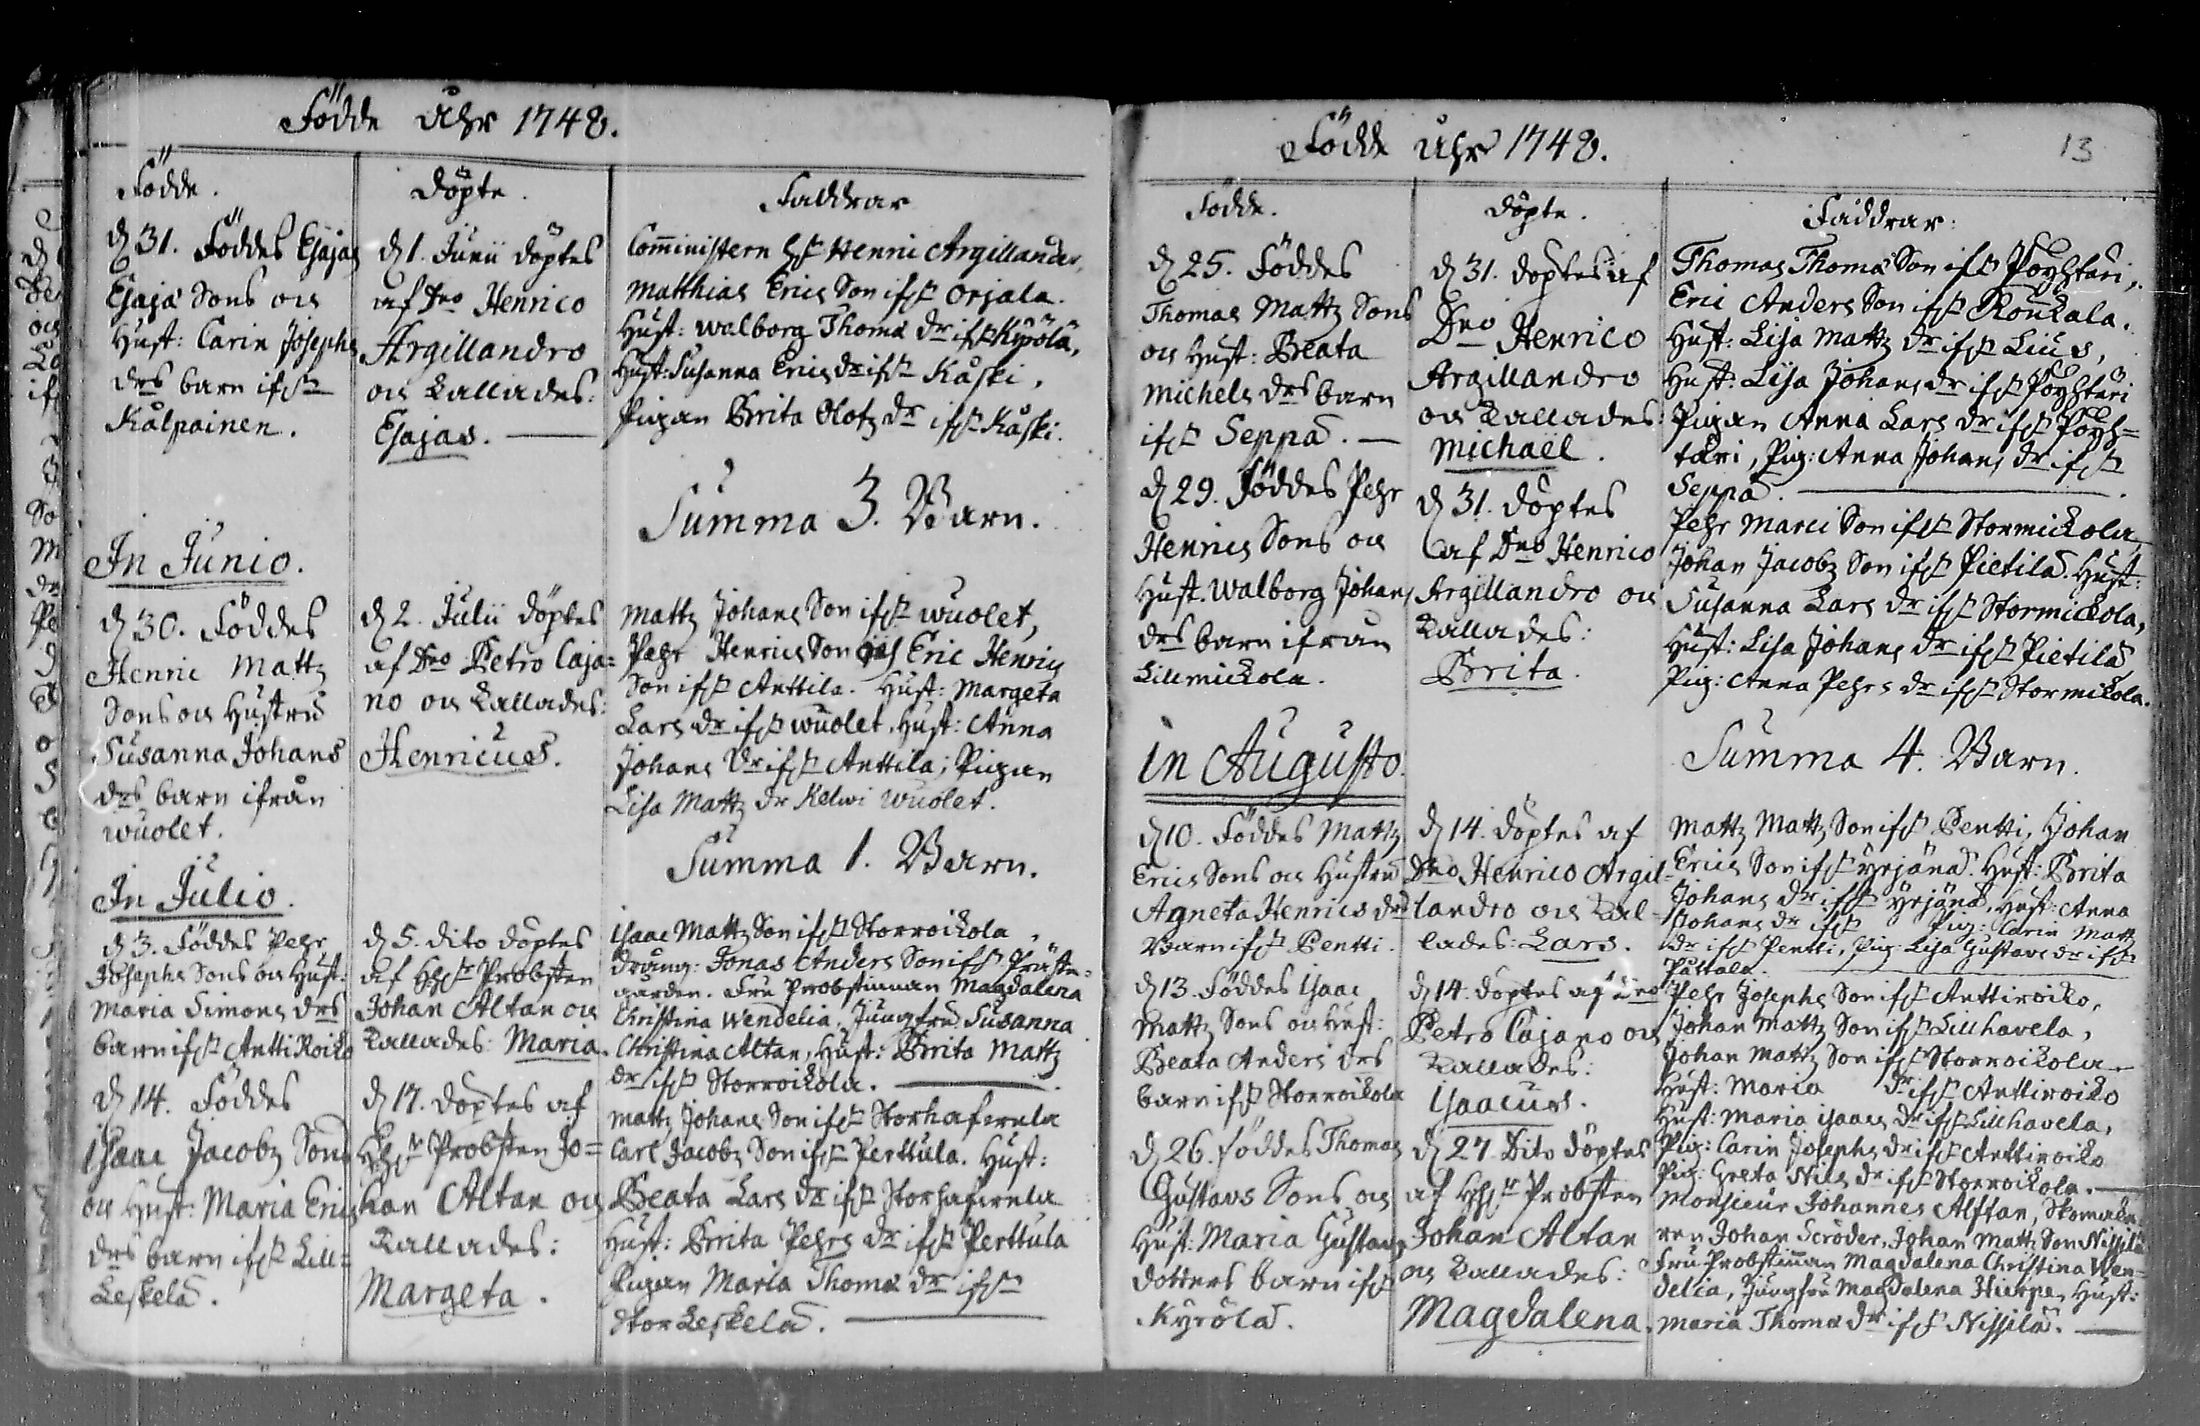 Födde Åhr 1748.
Födde.
d 31. Föddes Esajas
Esajæ Sons och
Hust: Carin Josephs
drs barn ifrån
Kålpainen.
In Junio.
d 30. Föddes
Henric Mattz
Sons och Hustru
Susanna Johans
drs barn ifrån
wuolet.
In Julio.
d 3. Föddes Pehr
Josephs Sons och Hust:
Maria Simons drs
barn ifrn AnttiRoiko
d 14. Föddes
Isaac Jacobz Sons
och Hust: Maria Erics
drs barn ifrn Lill=
Leskelä.
Döpte.
d 1. Junii döptes
af Dno Henrico
Argillandro
och Kallades:
Esajas.
d 2. Julii döptes
af Dno Petro Caja=
no och Kallades:
Henricus.
d 5. dito döptes
af HhPr Probsten
Johan Altan och
Kallades: Maria.
d 17. döptes af
Probsten Jo=
han Altan och
Kallades:
Margeta.
Faddrar
Comministern Hr Henric Argillander,
Matthias Erics Son ifrn Orjala.
Hust: Walborg Thomæ dr ifrn Kipölä,
Hust: Susanna Erics dr ifrn Kåski,
Pigan Brita Olofz dr ifrn Kåski.
Summa 3. Barn.
Mattz Johans Son ifrn wuolet,
Pehr Henrics Son Eric Henrics
Son ifrn Anttila. Hust: Margeta
Lars dr ifrn wuolet. Hust: Anna
Johans dr ifrn Anttila; Pigan
Lisa Mattz dr Kelwi wuolet.
Summa 1. Barn.
Isaac Mattz Son ifrn Storroikola,
Dräng: Jonas Anders Son ifrn Präste=
gården. Fru Probstinnan Magdalena
Christina Wendelia, Jungfru Susanna
Christina Altan, Hust: Brita Mattz
dr ifrn Storroikola.
Mattz Johans Son ifrn Storhaferela
Carl Jacobz Son ifrn Perttula. Hust:
Beata Lars dr ifrn Storhaferela
Hust: Brita Pehrs dr ifrn Perttula
Pigan Maria Thomæ dr ifrn
Stor Leskelä.
Födde Åhr 1748.
13
Födde.
d 25. Föddes
Thomas Mattz Sons
och Hust: Beata
Michels drs barn
ifrn Seppä.
d 29. Föddes Pehr
Henrics Sons och
Hust. Walborg Johans
drs barn ifrån
Lillmickola.
in Augusto.
d 10. Föddes Mattz
Erics Sons och Hustru
Agneta Henrics drs
Barn ifrn Pentti.
d 13. Föddes Isaac
Mattz Sons och Hust:
Beata Anders drs
barn ifrn Storroikola
d 26. föddes Thomas
Gustavs Sons och
Hust: Maria Gustavs
dotters barn ifrn
Kyrölä.
Döpte.
d 31. döptes af
Dno Henrico
Argillandro
och Kallades:
Michaël.
d 31. döptes
af Dno Henrico
Argillandro och
Kallades:
Brita.
d 14. döptes af
Dno Henrico Argil=
landro och Kal=
lades: Lars.
d 14. döptes af Dno
Petro Cajano och
Kallades:
Isaacus.
d 27. Dito döptes
af Probsten
Johan Altan
och Kallades:
Magdalena.
Faddrar:
Thomas Thomæ Son ifrn Pöyhtäri,
Eric Anders Son ifrn Roukala.
Hust: Lisa Mattz dr ifrn Lius,
Hust: Lisa Johans dr ifrn Pöyhtäri
Pigan Anna Lars dr ifrn Pöyh=
täri, Pig: Anna Johans dr ifrn
Seppä.
Pehr Marci Son ifrn Stormickola
Johan Jacobz Son ifrn Pietilä. Hust:
Susanna Lars dr ifrn Stormickola,
Hust: Lisa Johans dr ifrn Pietilä
Pig: Anna Pehrs dr ifrn Stormikola.
Summa 4. Barn.
Mattz Mattz Son ifrn Pentti, Johan
Erics Son ifrn Yrjänä. Hust: Brita
Johans dr ifrn Yrjänä, Hust: Anna
Johans dr ifrn Pig: Carin Mattz
dr ifrn Pentti, Pig: Lisa Gustavs dr ifrn
Påttala.
Pehr Josephs Son ifrn Anttiroiko,
Johan Mattz Son ifrn Lillhavela,
Johan Mattz Son ifrn Storroikola
Hust: Maria dr ifrn Anttiroiko
Hust: Maria Isaacs dr ifrn Lillhavela,
Pig: Carin Josephs dr ifrn Anttiroiko
Pig: Greta Nils dr ifrn Storroikola.
Monsieur Johannes Alftan, Skomaka=
ren Johan Scröder, Johan Mattz Son Nissilä
Fru Probstinnan Magdalena Christina Wen=
delia, Jungfru Magdalena Hierpe, Hust:
Maria Thomæ dr ifrn Nissilä.